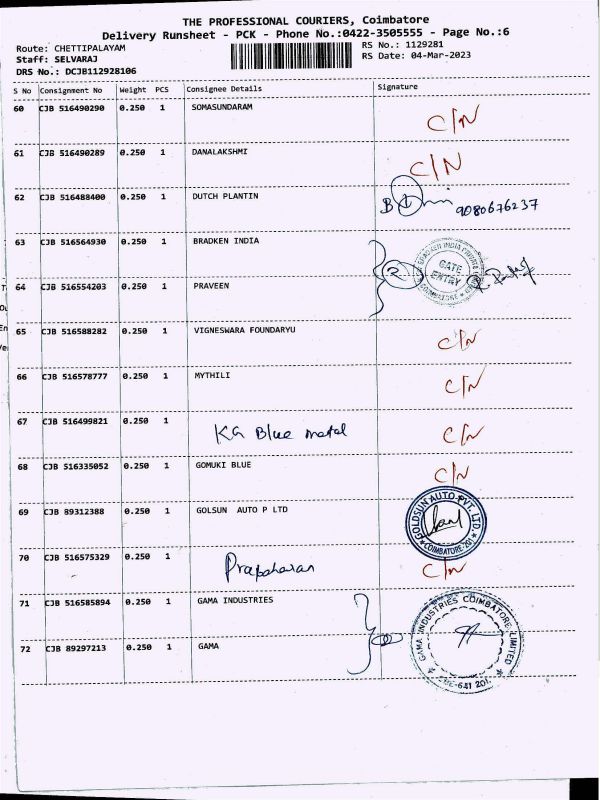 THE PROFESSIONAL COURIERS, Coimbatore
Delivery Runsheet - PCK - Phone No.:0422-3505555 - Page No.:6
Route: CHETTIPALAYAM
RS No.: 1129281
Staff: SELVARAJ
RS Date: 04-Mar-2023
DRS No.: DCJB112928106
S No Consignment No Weight PCS Consignee Details Signature
60 CJB 516490290 0.250 1 SOMASUNDARAM C/N
61 CJB 516490289 0.250 1 DANALAKSHMI C/N
62 CJB 516488400 0.250 1 DUTCH PLANTIN 9080676237
63 CJB 516564930 0.250 1 BRADKEN INDIA
BRADKEN INDIA
GATE
ENTRY
COIMBATORE
2
64 CJB 516554203 0.250 1 PRAVEEN
65 CJB 516588282 0.250 1 VIGNESWARA FOUNDARYU C/N
66 CJB 516578777 0.250 1 MYTHILI C/N
67 CJB 516499821 0.250 1 KG Blue metal C/N
68 CJB 516335052 0.250 1 GOMUKI BLUE C/N
69 CJB 89312388 0.250 1 GOLSUN AUTO P LTD
GOLDSUN AUTO PVT. LTD.
COIMBATORE-201
70 CJB 516575329 0.250 1 Prapaharan C/N
71 CJB 516585894 0.250 1 GAMA INDUSTRIES
GAMA INDUSTRIES COIMBATORE LIMITED
CBE-641 201.
72 CJB 89297213 0.250 1 GAMA